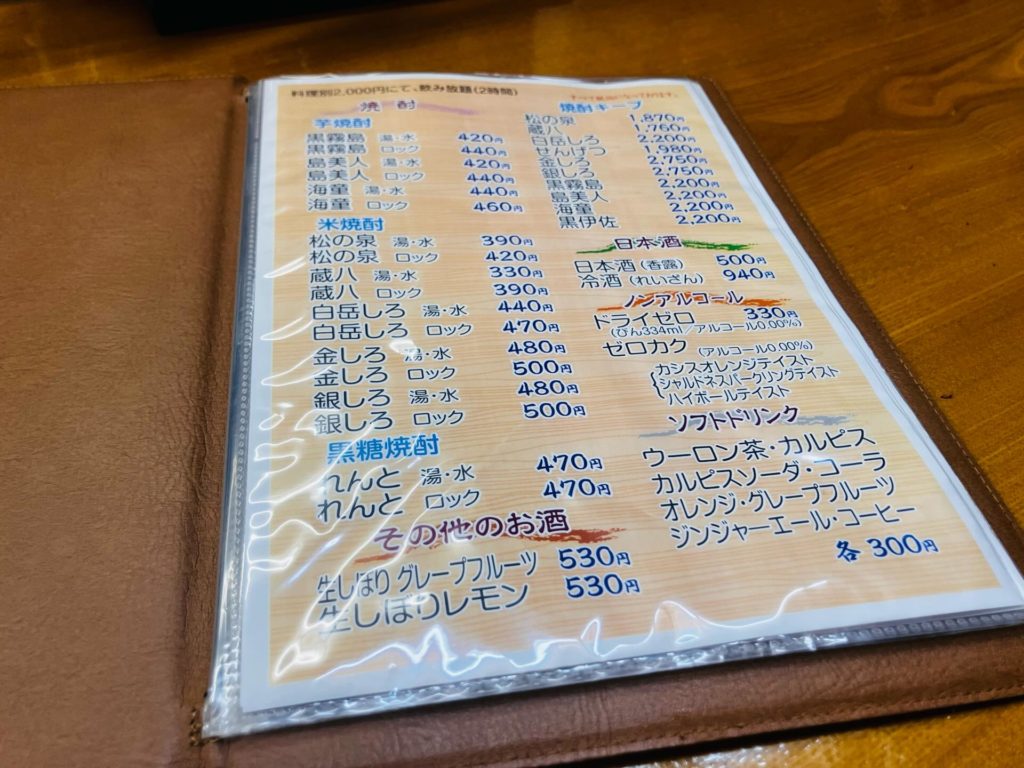 料理別2,000円にて、飲み放題(2時間)
焼酎
芋焼酎
黒霧島 湯・水 420円
黒霧島 ロック 440円
島美人 湯・水 420円
島美人 ロック 440円
海童 湯・水 440円
海童 ロック 460円
米焼酎
松の泉 湯・水 390円
松の泉 ロック 420円
蔵八 湯・水 330円
蔵八 ロック 390円
白岳しろ 湯・水 440円
白岳しろ ロック 470円
金しろ 湯・水 480円
金しろ ロック 500円
銀しろ 湯・水 480円
銀しろ ロック 500円
黒糖焼酎
れんと 湯・水 470円
れんと ロック 470円
その他のお酒
生しぼり グレープフルーツ 530円
生しぼりレモン 530円
焼酎キープ
松の泉 1,870円
蔵八 1,760円
白岳しろ 2,200円
せんげつ 1,980円
金しろ 2,750円
銀しろ 2,750円
黒霧島 2,200円
島美人 2,200円
海童 2,200円
黒伊佐 2,200円
日本酒
日本酒(香露) 500円
冷酒(れいざん) 940円
ノンアルコール
ドライゼロ 330円
(びん334ml/アルコール0.00%)
ゼロカク (アルコール0.00%)
カシスオレンジテイスト
シャルドネスパークリングテイスト
ハイボールテイスト
ソフトドリンク
ウーロン茶・カルピス
カルピスソーダ・コーラ
オレンジ・グレープフルーツ
ジンジャーエール・コーヒー
各 300円